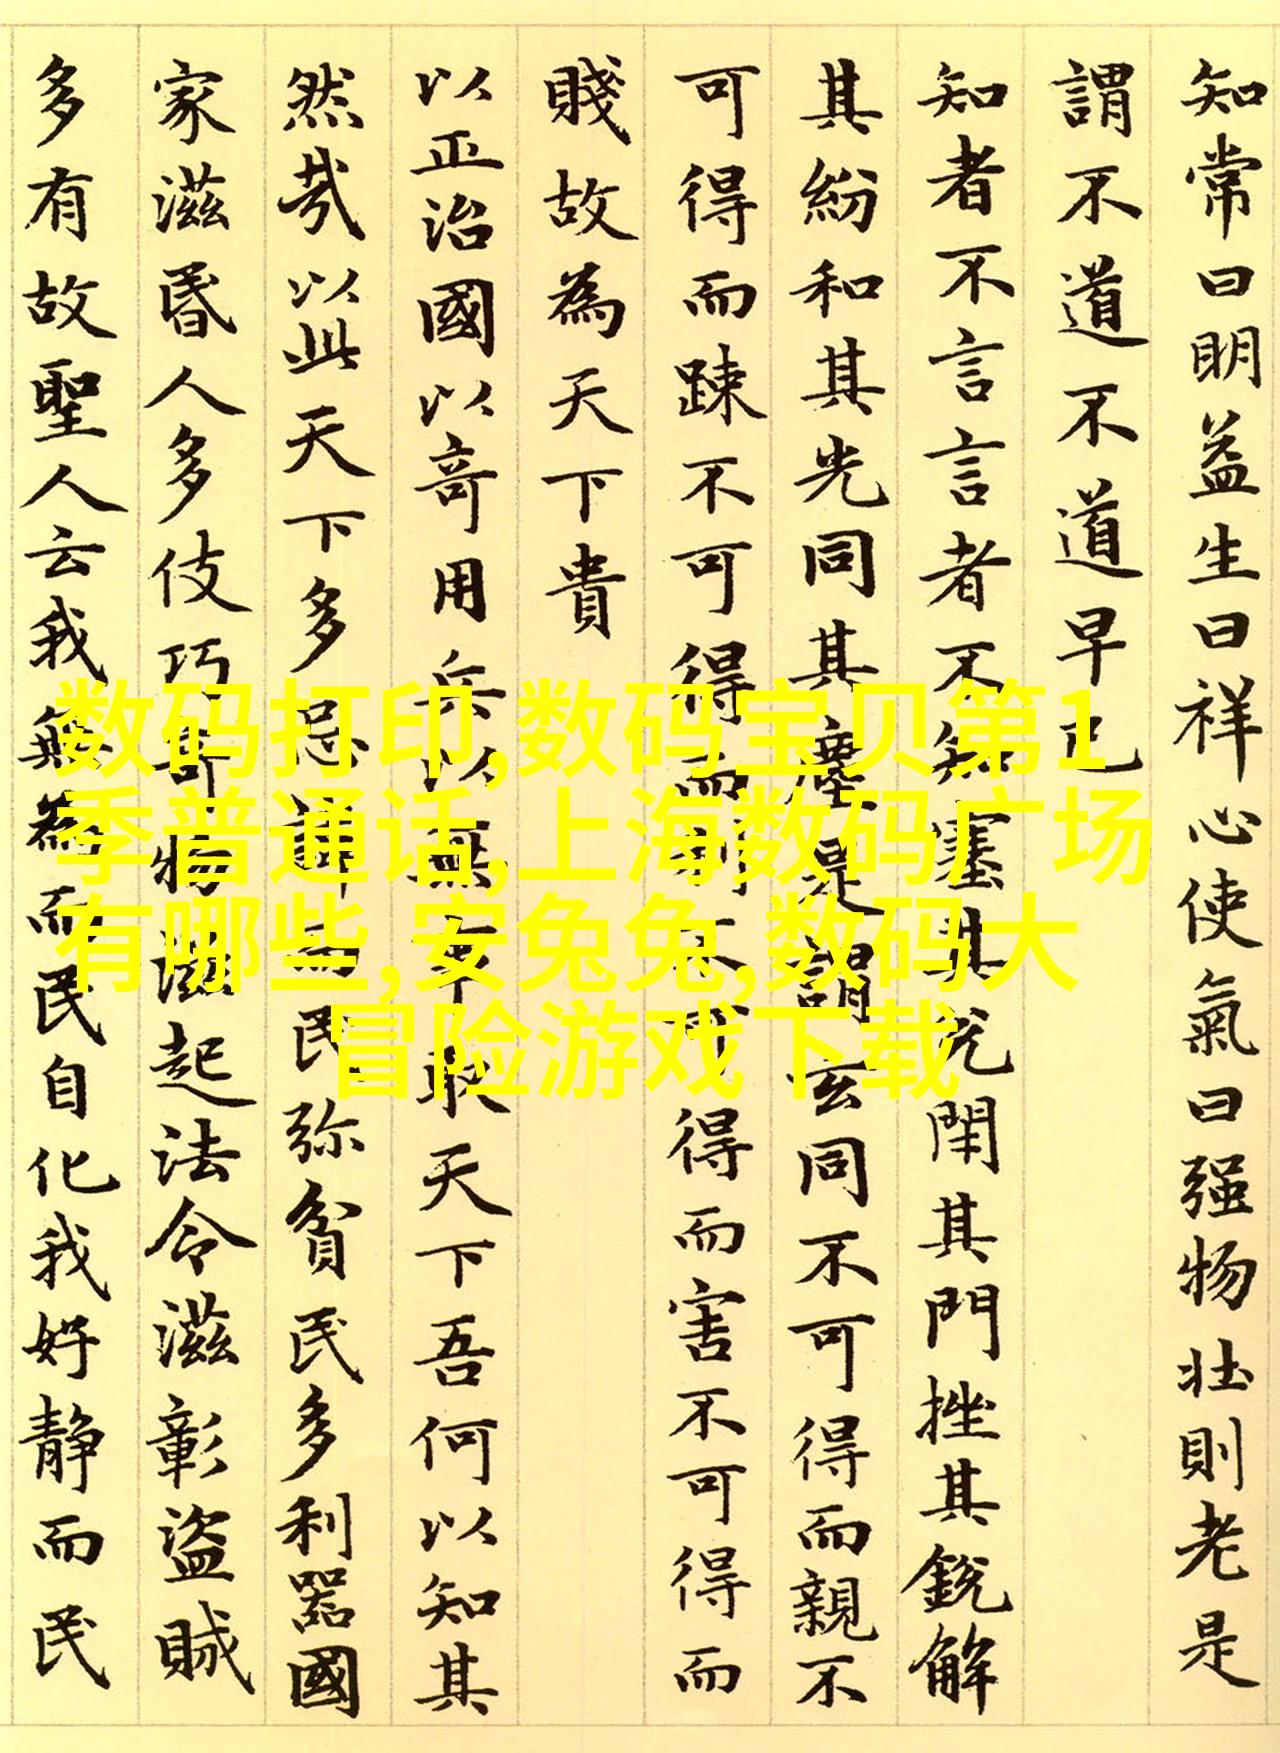 知常曰明益生曰祥心使氣曰强物壯則老是
謂不道不道早已
知者不言言者不知塞其兌閇其門挫其銳解
其紛和其光同其塵是謂玄同不可得而親不
可得而踈不可得而利不可得而害不可得而
賤故為天下貴
以正治國以竒用兵以無事取天下吾何以知其
然哉以此天下多忌諱而民弥貧民多利器國
家滋昬人多伎巧竒物滋起法令滋彰盜賊
多有故聖人云我無為而民自化我好静而民
数码打印,数码宝贝第1
季普通话,上海数码广场
有哪些,安兔兔,数码大
冒险游戏下载